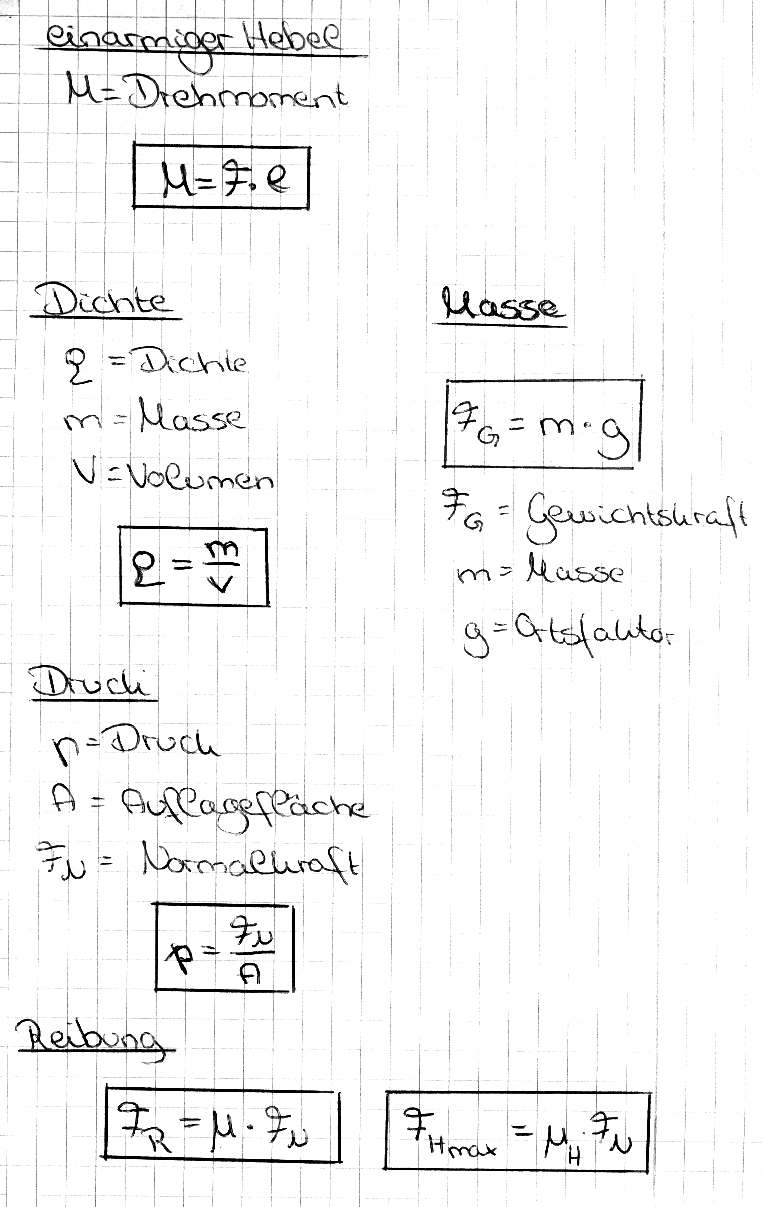 einarmiger Hebel
M = Drehmoment
M = F · l
Dichte
ρ = Dichte
m = Masse
V = Volumen
ρ = m/V
Masse
F_G = m · g
F_G = Gewichtskraft
m = Masse
g = Ortsfaktor
Druck
p = Druck
A = Auflagefläche
F_N = Normalkraft
p = F_N/A
Reibung
F_R = μ · F_N
F_Hmax = μ_H · F_N